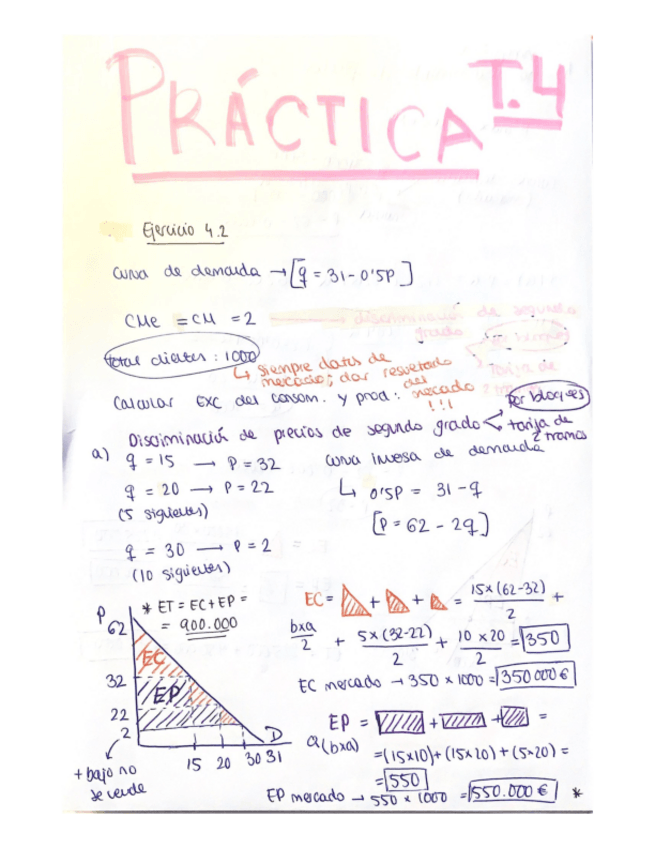 PRÁCTICA T.4
Ejercicio 4.2
curva de demanda → [q = 31 - 0'5P]
CMe = CM = 2
total clientes : 1000
↳ siempre datos de
mercado; dar resultado
del
mercado
!!!
Calcular EXC del consum. y prod :
Discriminación de precios de segundo grado < por bloques
tarifa de
2 tramos
a) q = 15 → P = 32
q = 20 → P = 22
(5 siguientes)
q = 30 → P = 2
(10 siguientes)
curva inversa de demanda
↳ 0'5P = 31 - q
[P = 62 - 2q]
* ET = EC + EP =
= 900.000
EC = + + = 15 x (62-32) / 2 +
bxa / 2 + 5 x (32-22) / 2 + 10 x 20 / 2 = 350
EC mercado → 350 x 1000 = 350 000 €
P
62
32
22
2
EC
EP
D
15 20 30 31
+ bajo no
se vende
EP = + + =
(bxa)
= (15x10) + (15x20) + (5x20) =
= 550
EP mercado → 550 x 1000 = 550.000 € *